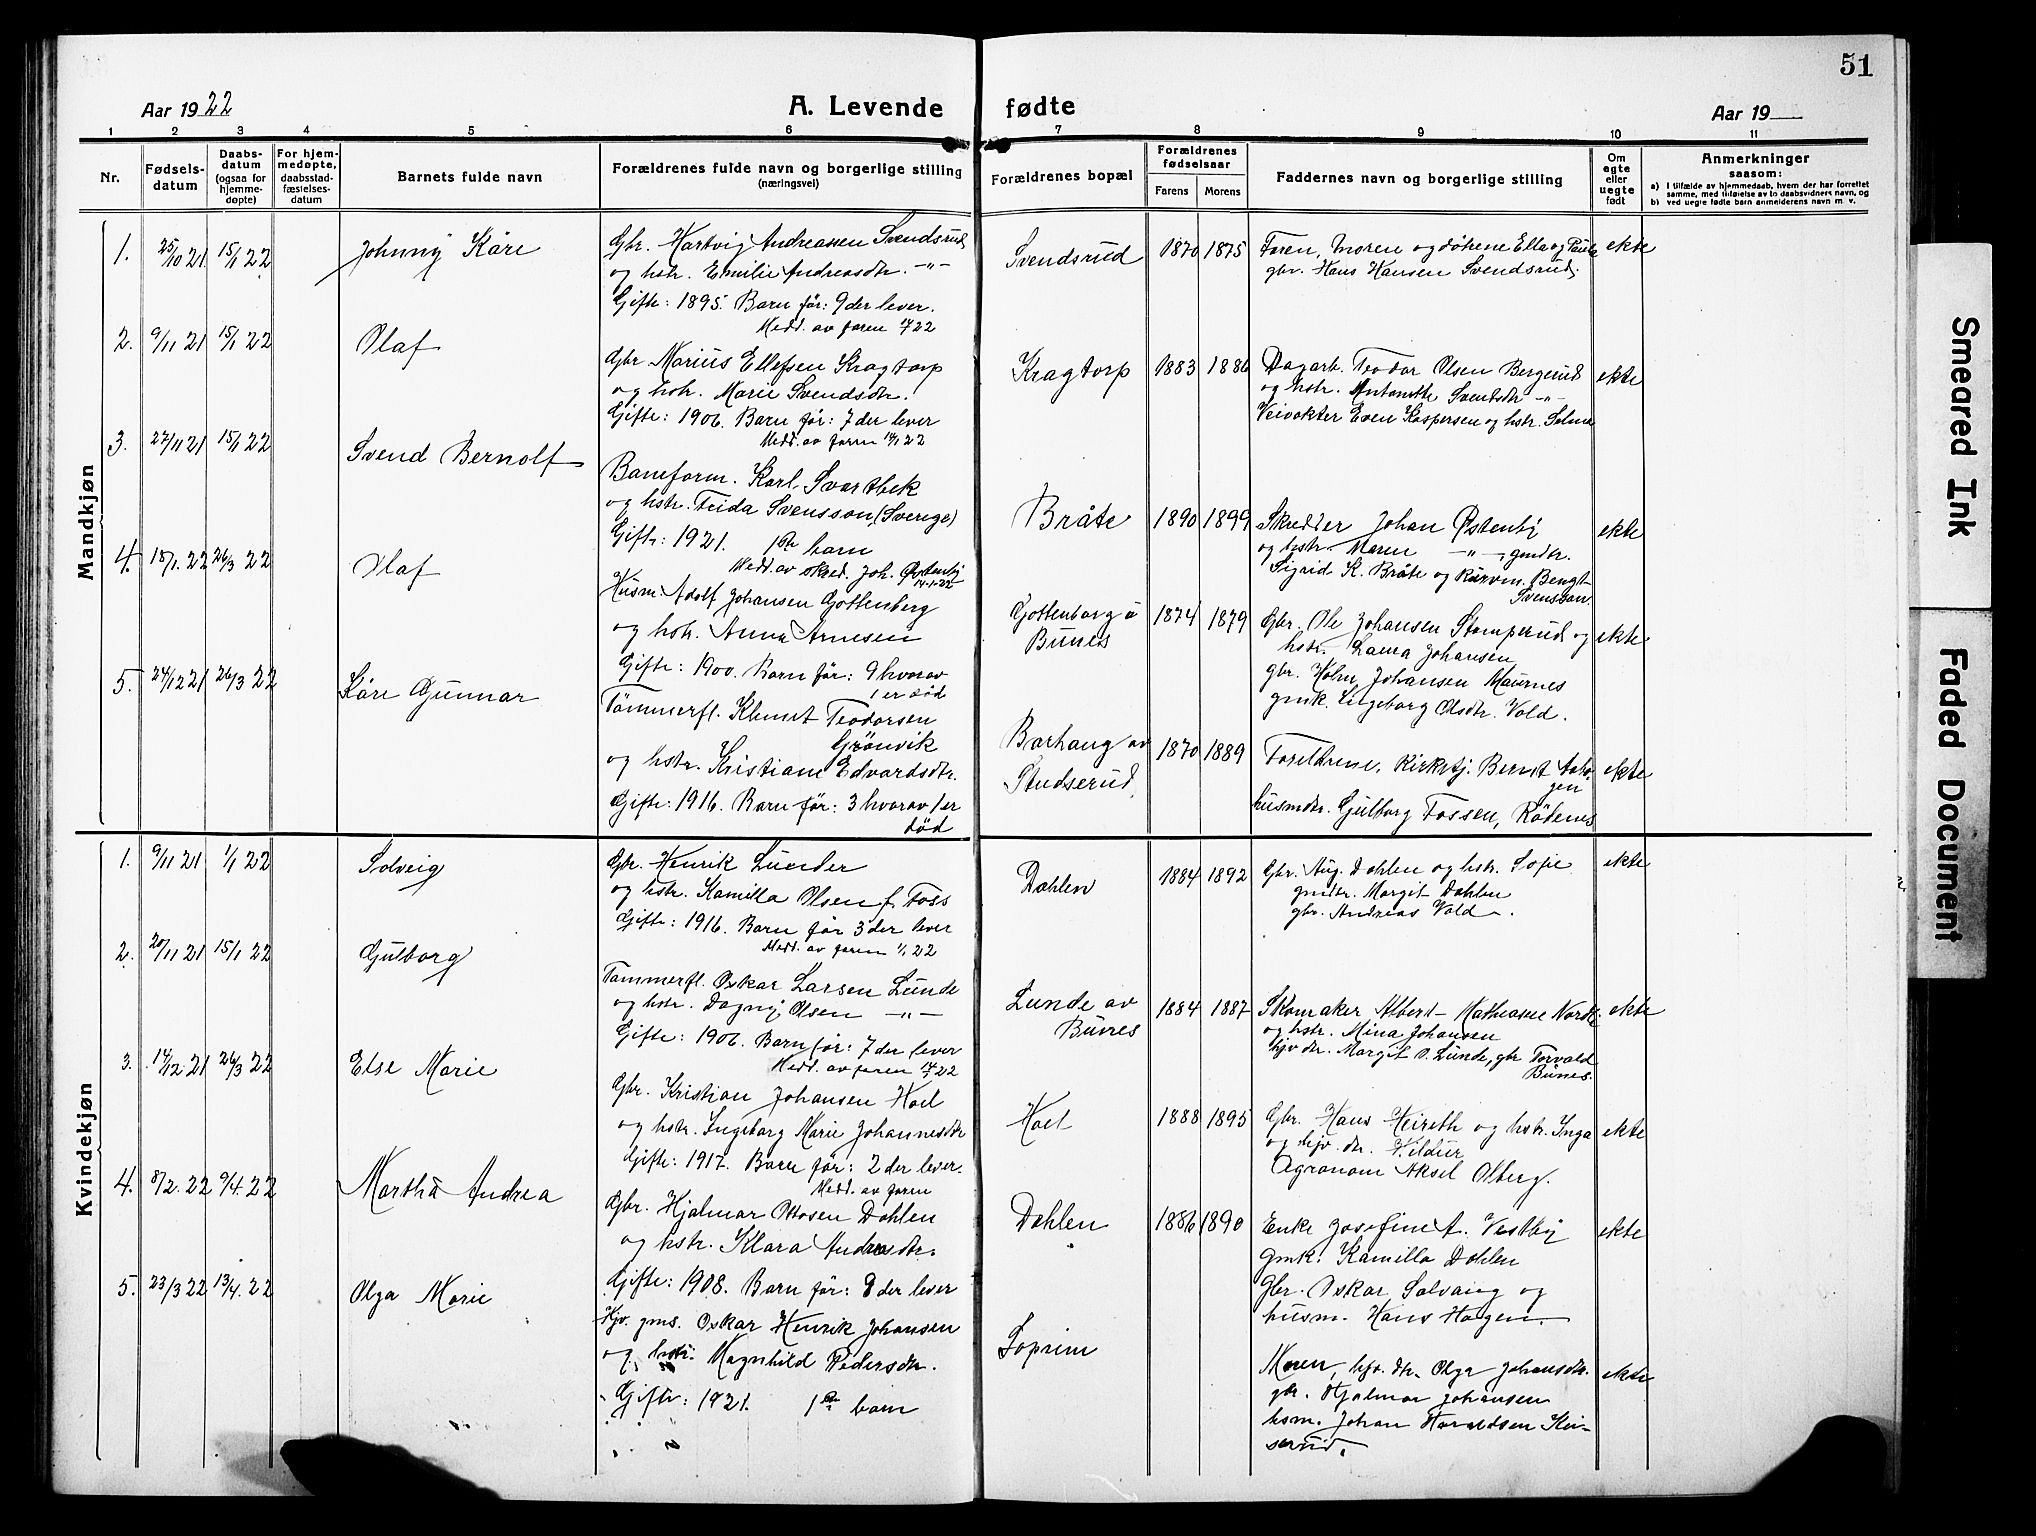 51
Aar 1922
A. Levende fødte
Aar 19
1 2 3 4 5 6 7 8 9 10 11
Nr.
Fødsels-
datum
Daabs-
datum
(ogsaa for
hjemme-
døpte)
For hjem-
medøpte,
daabsstad-
fæstelses-
datum
Barnets fulde navn
Forældrenes fulde navn og borgerlige stilling
(næringsvei)
Forældrenes bopæl
Forældrenes
fødselsaar
Farens Morens
Faddernes navn og borgerlige stilling
Om
egte
eller
uegte
født
Anmerkninger
saasom:
a) I tilfælde av hjemmedaab, hvem der har forrettet
samme, med tilføielse av to daabsvidners navn, og
b) ved uegte fødte barn anmelderens navn m. v.
Mandkjøn
1. 25/10 21 15/1 22 Johnny Kåre
Gbr. Hartvig Andreassen Svendsrud
og hstr. Emilie Andreasdtr. -"-
Gifte: 1895. Barn før: 9 der lever.
Medd. av faren 22
Svendsrud 1870 1875
Faren, moren og døtrene Ella og Paula
gbr. Hans Hansen Svendsrud.
ekte
2. 9/11 21 15/1 22 Olaf
Gbr. Marius Ellefsen Kragtorp
og hstr. Marie Svendsdtr.
Gifte: 1906. Barn før: 7 der lever
Medd. av faren 22
Kragtorp 1883 1886
Dagarb. Teodor Olsen Bergerud
og hstr. Antonette Svendsdtr -"-
Veivokter Even Kaspersen og hstr. Selma
ekte
3. 27/11 21 15/1 22 Svend Bernolf
Baneform. Karl Svartbek
og hstr. Frida Svensson (Sverige)
Gifte: 1921. 1ste barn
Medd. av skred. Joh. Østenby
14-1-22
Bråte 1890 1899
Skredder Johan Østenby
og hstr. Maren -"-, gmdtr.
Sigrid K. Bråte og Bengt
Svensson.
ekte
4. 15/1. 22 26/3 22 Olaf
Husm. Adolf Johansen Gottenberg
og hstr. Anna Arnesen
Gifte: 1900. Barn før: 9 hvorav
1 er død
Gottenborg u
Bunes
1874 1879
Gbr. Ole Johansen Stomperud og
hstr. Laura Johansen
gbr. Holm Johansen Maurnes
gmk. Ingeborg Olsdtr. Vold.
ekte
5. 24/12 21 26/3 22 Kåre Gunnar
Tømmerfl. Klemet Teodorsen
Grønvik
og hstr. Kristiane Edvardsdtr.
Gifte: 1916. Barn før: 3 hvorav 1 er
død
Barhaug av
Studserud
1870 1889
Foreldrene, Kirketj. Bernt
husmdtr. Gulborg Fossen, Rødenes
ekte
Kvindekjøn
1. 9/11 21 1/1 22 Solveig
Gbr. Henrik Lunder
og hstr. Kamilla Olsen f. Foss
Gifte: 1916. Barn før 3 der lever
Medd. av faren 1/1 22
Dahlen 1884 1892
Gbr. Aug. Dahlen og hstr. Sofie
gmdtr. Margit Dahlen
gbr. Andreas Vold.
ekte
2. 20/11 21 15/1 22 Gulborg
Tømmerfl. Oskar Larsen Lunde
og hstr. Dagny Olsen -"-
Gifte: 1906. Barn før: 7 der lever
Medd. av faren 22
Lunde av
Bunes
1884 1887
Skomaker Albert Mathiasen
og hstr. Mina Johansen
hjv dtr. Margit O. Lunde, gbr Torvald
Bunes.
ekte
3. 14/12. 21 26/3 22 Else Marie
Gbr. Kristian Johansen Hoel
og hstr. Ingeborg Marie Johannesdtr
Gifte: 1917. Barn før: 2 der lever.
Medd. av faren
Hoel 1888 1895
Gbr. Hans Heireth og hstr. Inga
og hjv. dtr. Vildur
Agronom Aksel Olberg.
ekte
4. 8/2. 22 9/4. 22 Martha Andrea
Gbr. Hjalmar Ottosen Dahlen
og hstr. Klara Andreasdtr.
Gifte: 1908. Barn før: 8 der lever
Dahlen 1886 1890
Enke Josefine A. Vestby
gmk. Kamilla Dahlen
Gbr. Oskar Solvang og
husm. Hans Hagen.
ekte
5. 23/3 22 13/4. 22 Olga Marie
Hjv. gms. Oskar Henrik Johansen
og hstr. Magnhild Pedersdtr.
Gifte: 1921. 1ste barn
Soprim
Moren, hjv. dtr. Olga Johansdtr.
gbr. Hjalmar Johansen
hsm. Johan Haraldsen Kin-
serud.
ekte
Smeared Ink
Faded Document